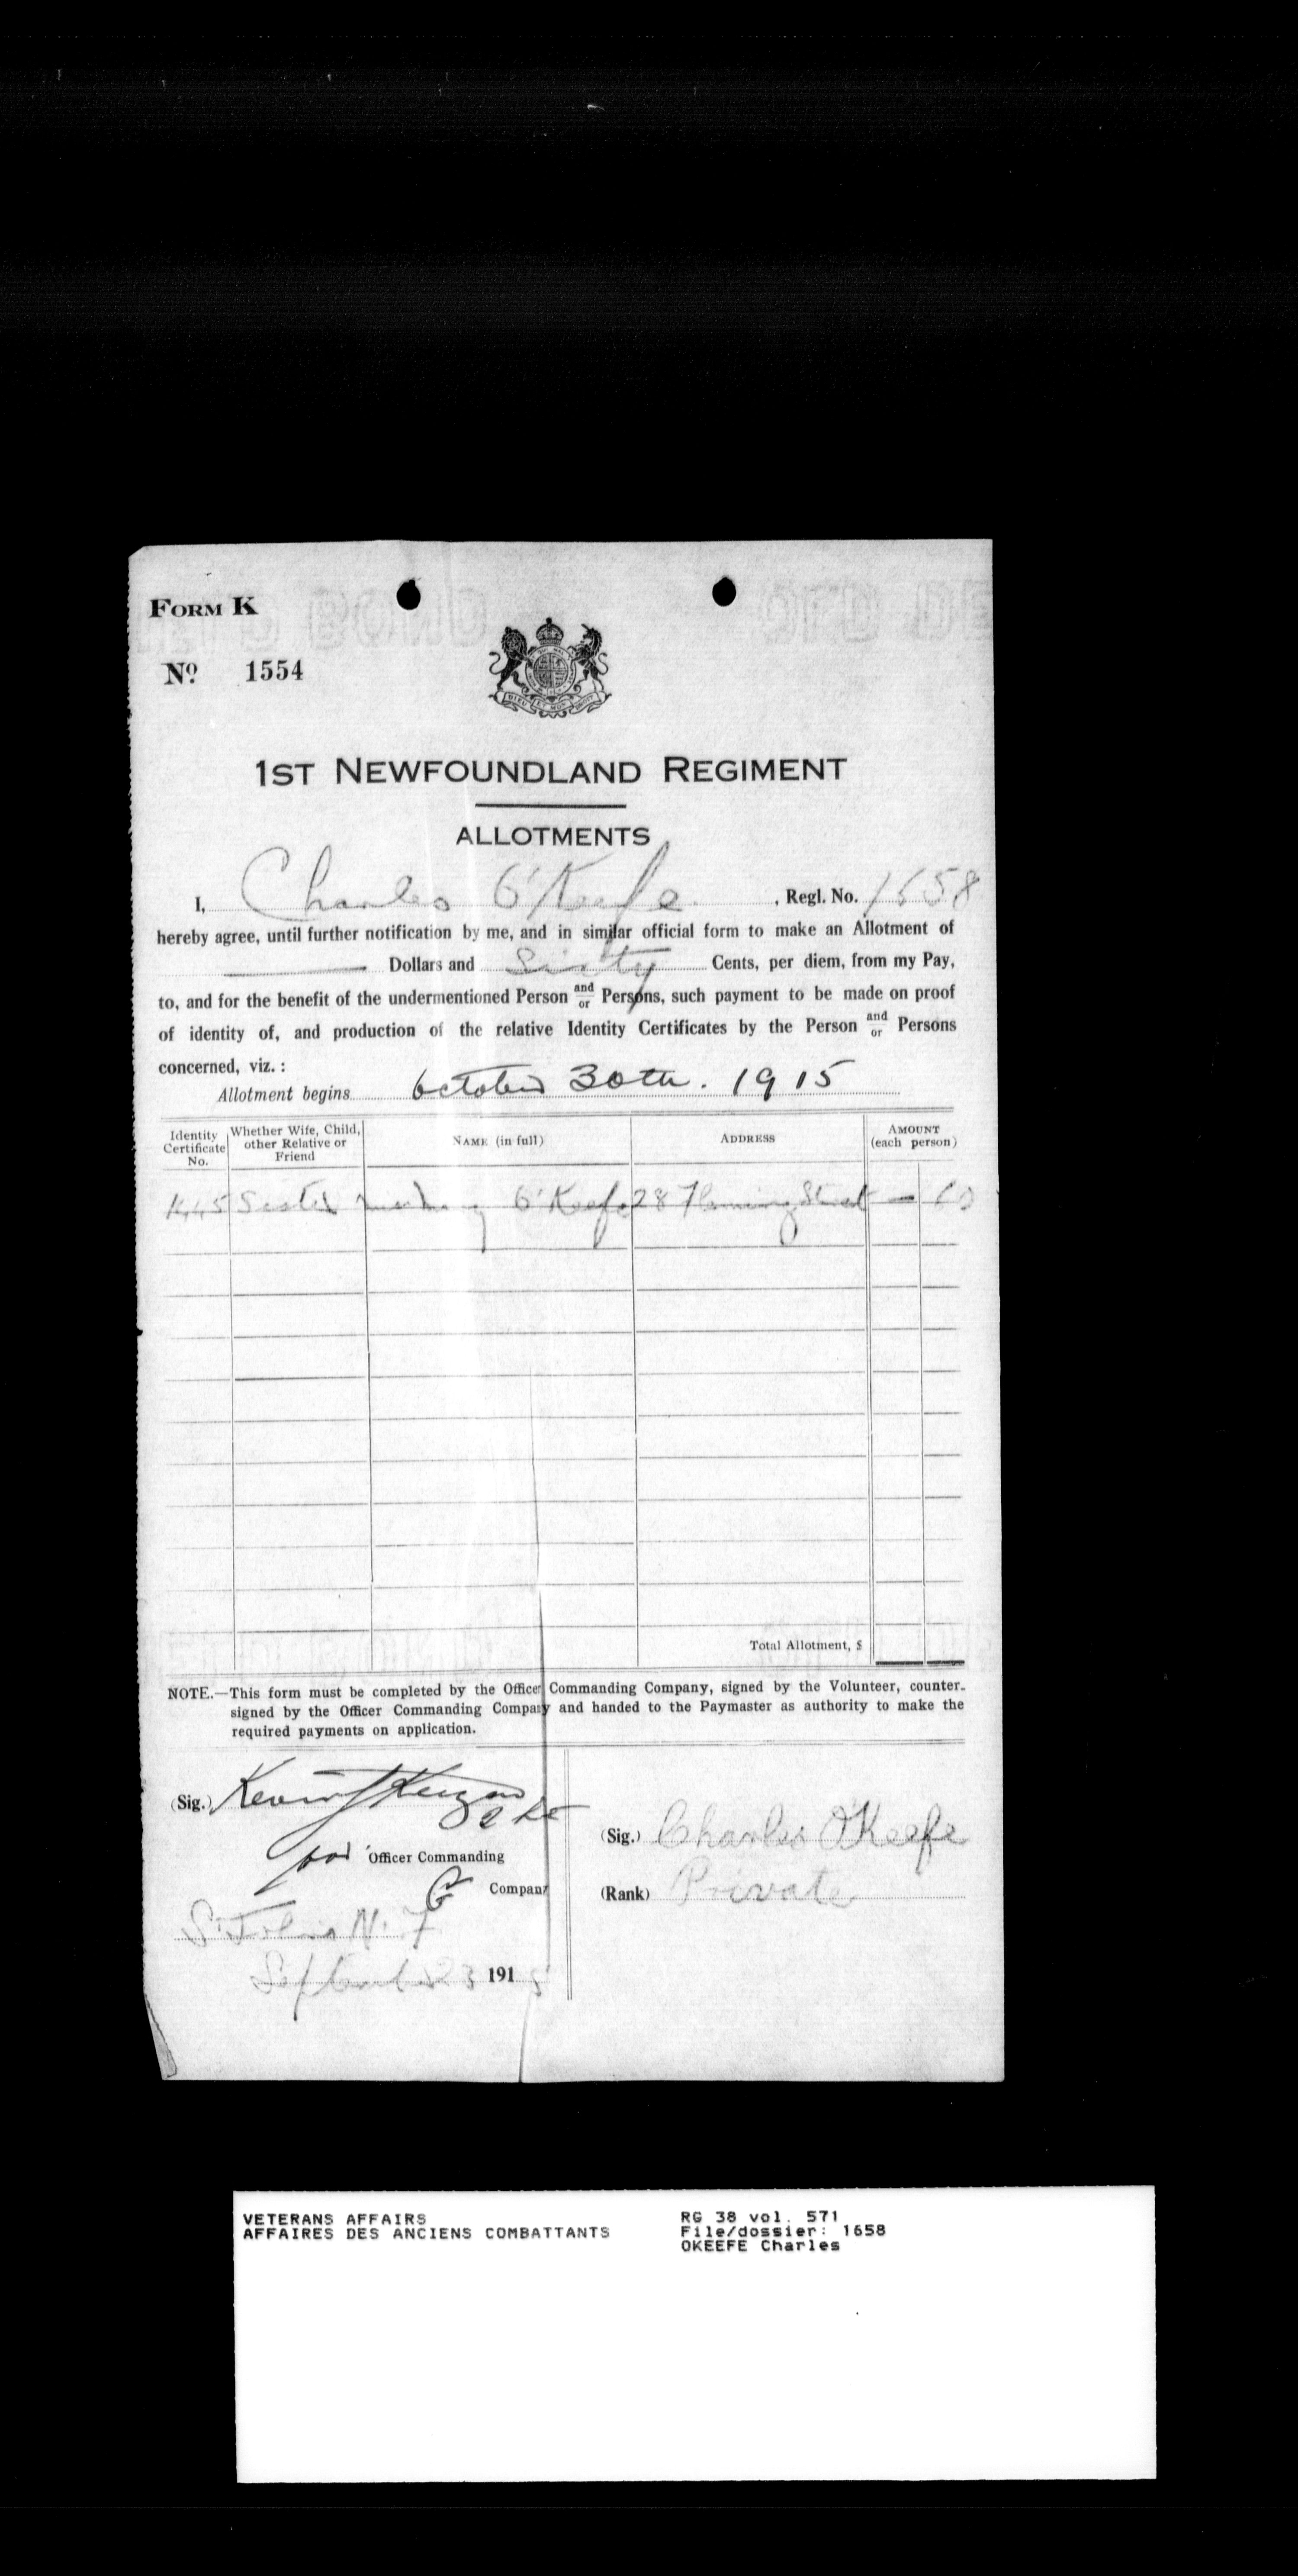 FORM K
Nº 1554
DIEU ET MON DROIT
1ST NEWFOUNDLAND REGIMENT
ALLOTMENTS
I, Charles O'Keefe , Regl. No. 1658
hereby agree, until further notification by me, and in similar official form to make an Allotment of
Dollars and Sixty Cents, per diem, from my Pay,
to, and for the benefit of the undermentioned Person and/or Persons, such payment to be made on proof
of identity of, and production of the relative Identity Certificates by the Person and/or Persons
concerned, viz. :
Allotment begins October 30th. 1915
Identity Certificate No. Whether Wife, Child, other Relative or Friend NAME (in full) ADDRESS AMOUNT (each person)
Sister O'Keefe 28 Fleming Street — 60
Total Allotment, $
NOTE.—This form must be completed by the Officer Commanding Company, signed by the Volunteer, counter-
signed by the Officer Commanding Company and handed to the Paymaster as authority to make the
required payments on application.
(Sig.)
for Officer Commanding
Company
St Johns N. F
September 23 1915
(Sig.) Charles O'Keefe
(Rank) Private
VETERANS AFFAIRS
AFFAIRES DES ANCIENS COMBATTANTS
RG 38 vol. 571
File/dossier: 1658
OKEEFE Charles